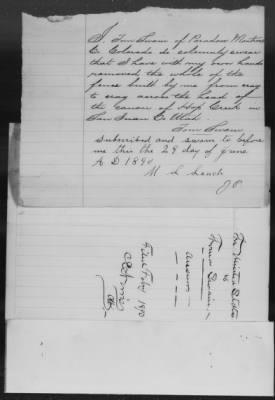 I Tom Swain of Paradox Montrose
Co Colorado do solemnly swear
that I have with my own hands
removed the whole of the
fence built by me from crag
to crag across the head of
the canon of Hop Creek in
San Juan Co Utah
Tom Swain
Subscribed and sworn to before
me this the 29 day of June
A D 1890
M. L. Leach
J P
The United States
vs
Thomas Swain
Answer
Filed
1890